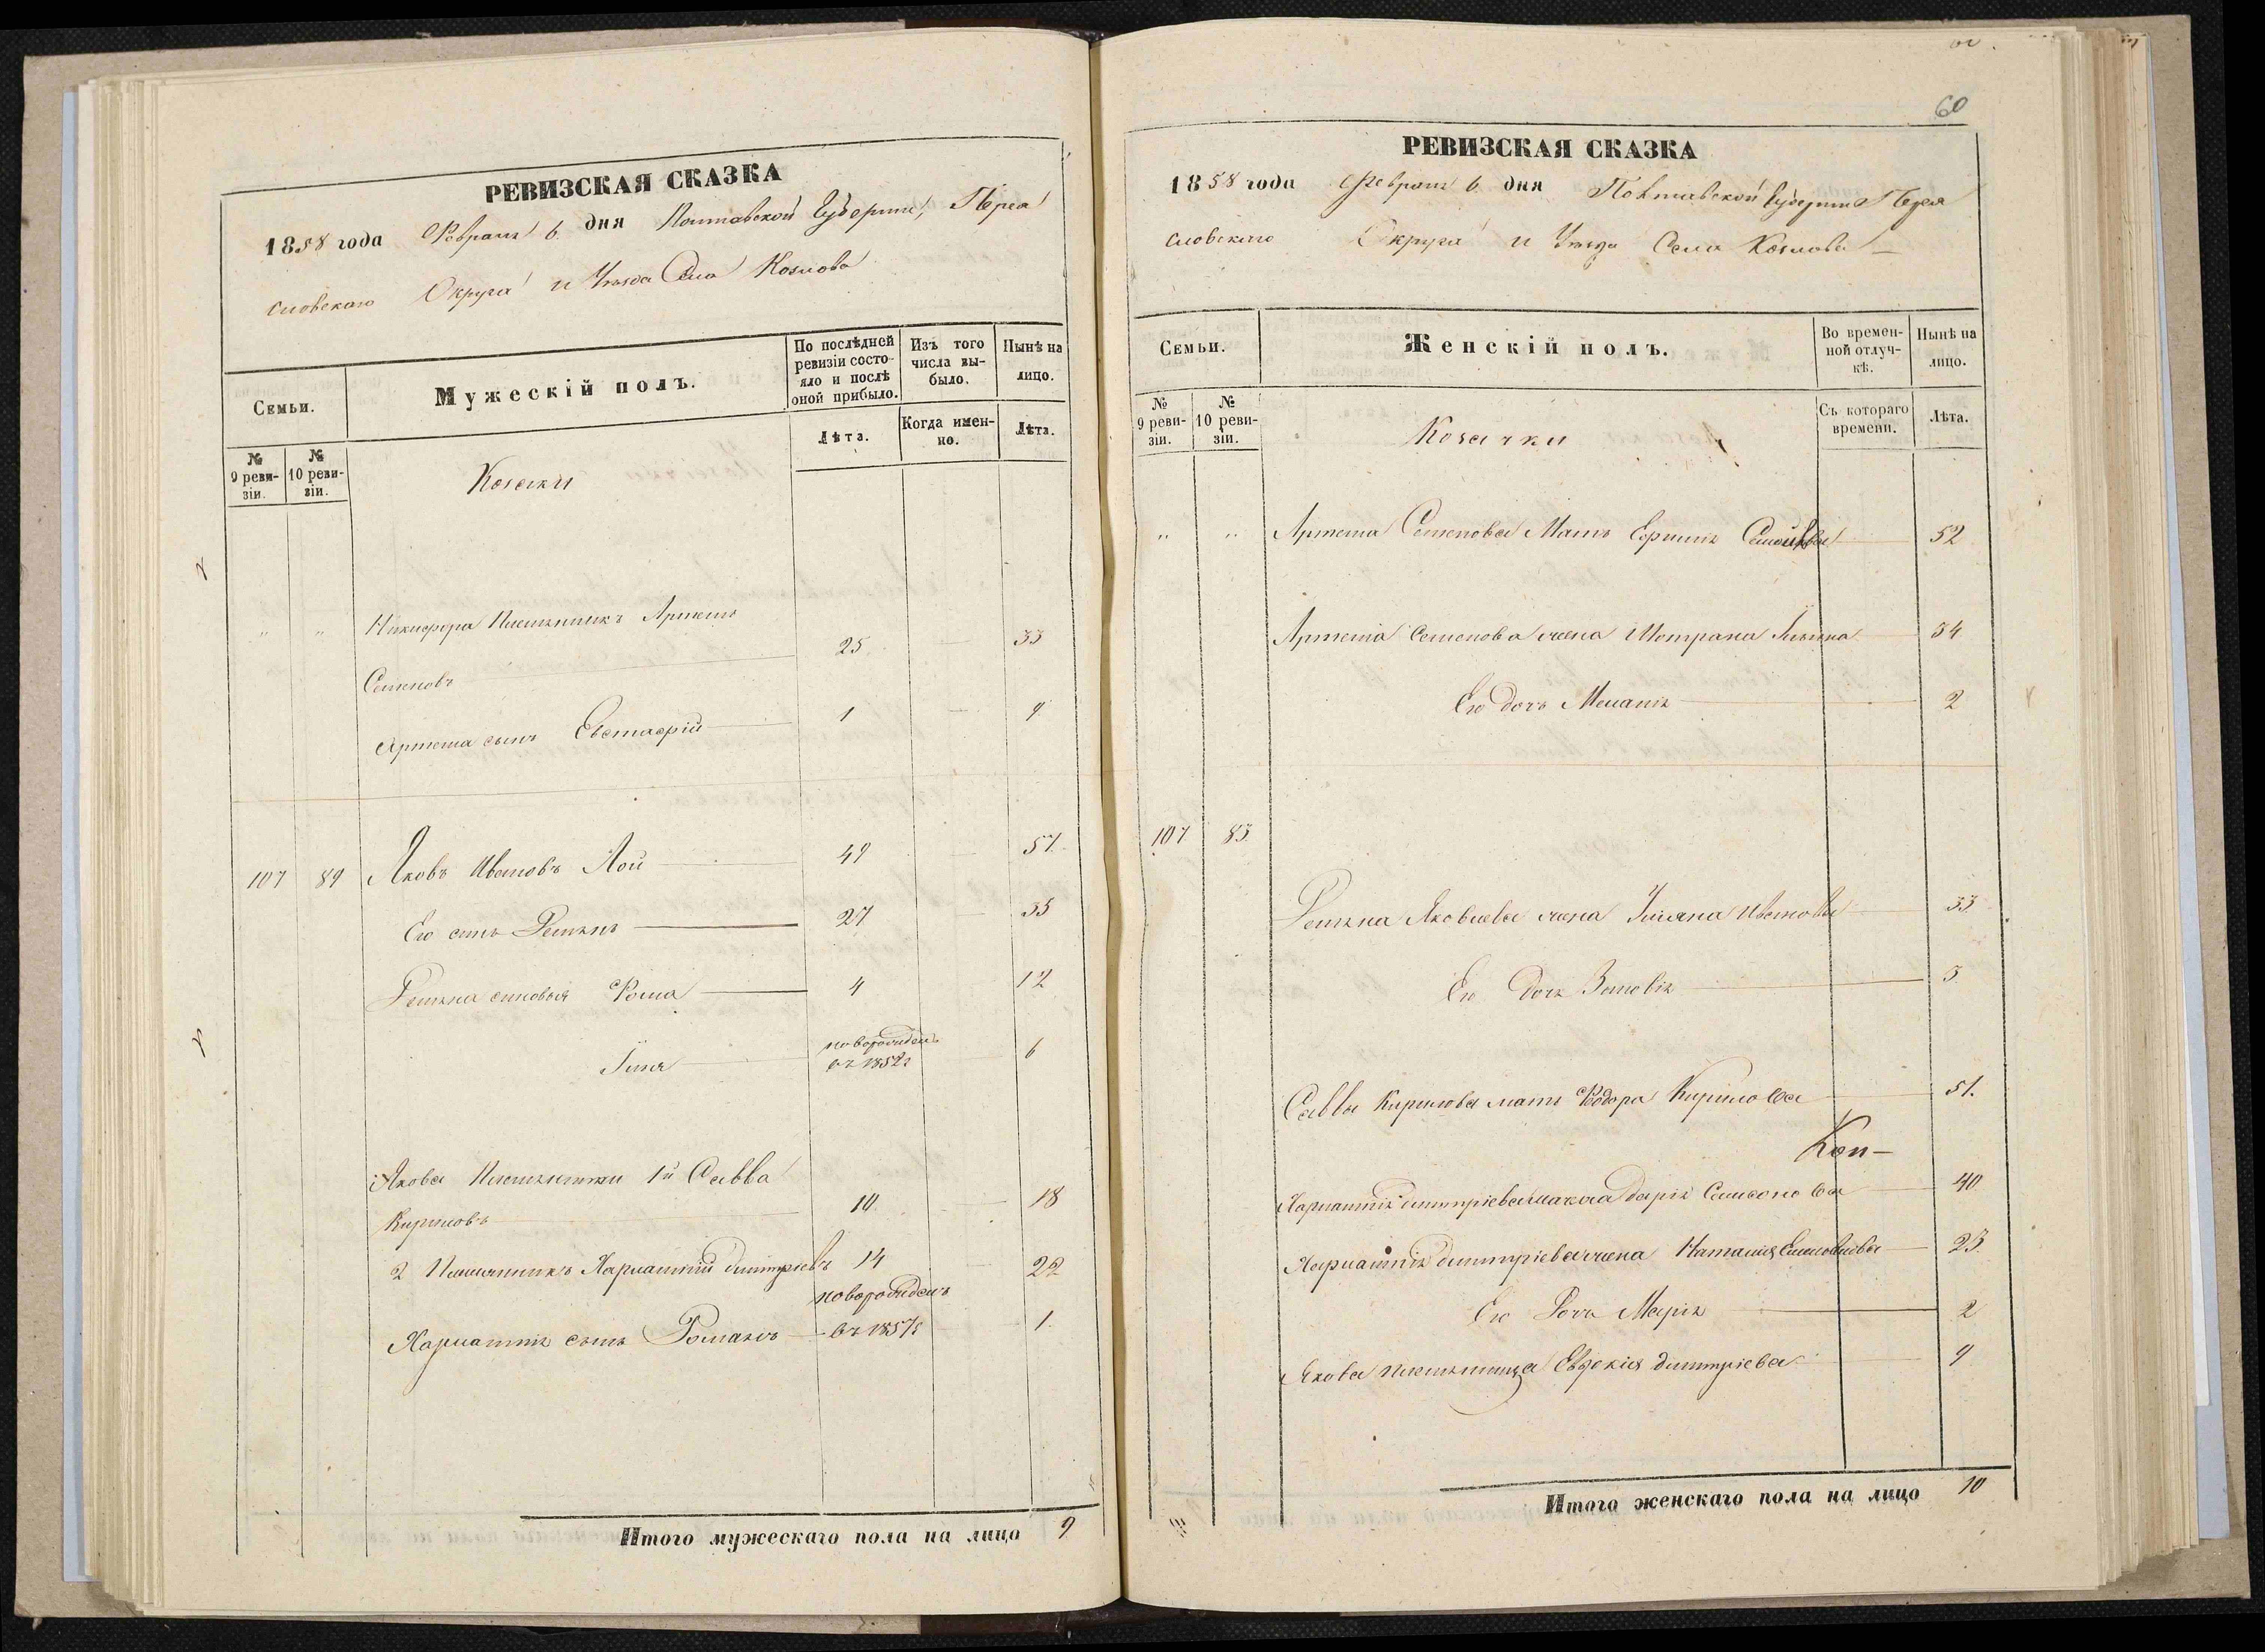 РЕВИЗСКАЯ СКАЗКА
1858 года Февраля 6 дня Полтавской Губернии, Перея
словскаго Округа и Уезда Села Козлова
Семьи.
Мужескій полъ.
По послѣдней ревизіи состояло и послѣ оной прибыло.
Изъ того числа выбыло.
Нынѣ на лицо.
№ 9 ревизіи.
№ 10 ревизіи.
Лѣта.
Когда именно.
Лѣта.
Козаки
" " Никифора Племянникъ Артемъ
Семеновъ 25 33
Артема сынъ Евстафій 1 9
107 89 Яковъ Ивановъ Лой 49 57
Его сынъ Демьянъ 27 35
Демьяна сыновья Фома 4 12
Илья новорожден въ 1852 г 6
Якова Племянники 1й Савва
Кириловъ 10 18
2 Племянникъ Харлампій Дмитріевъ 14 22
Харлампія сынъ Романъ новорожденъ въ 1857 г 1
Итого мужескаго пола на лицо 9
60
РЕВИЗСКАЯ СКАЗКА
1858 года Февраля 6 дня Полтавской Губернии Перея
словскаго Округа и Уезда Села Козлова
Семьи.
Женскій полъ.
Во временной отлучкѣ.
Нынѣ на лицо.
№ 9 ревизіи.
№ 10 ревизіи.
Съ котораго времени.
Лѣта.
Козачки
" " Артема Семенова Мать 52
Артема Семенова жена 34
Его дочь Меланія 2
107 83
Демьяна Яковлева жена Ульяна Иванова 33
Его Дочь Зиновія 3
Саввы Кирилова мать Федора Кирилова 51.
Кон-
Харлампія Дмитріева мачиха Дарія Самсонова 40
Харлампія Дмитріева жена Наталія 23
Его Дочь Марія 2
Якова племянница Евдокія Дмитріева 9
Итого женскаго пола на лицо 10